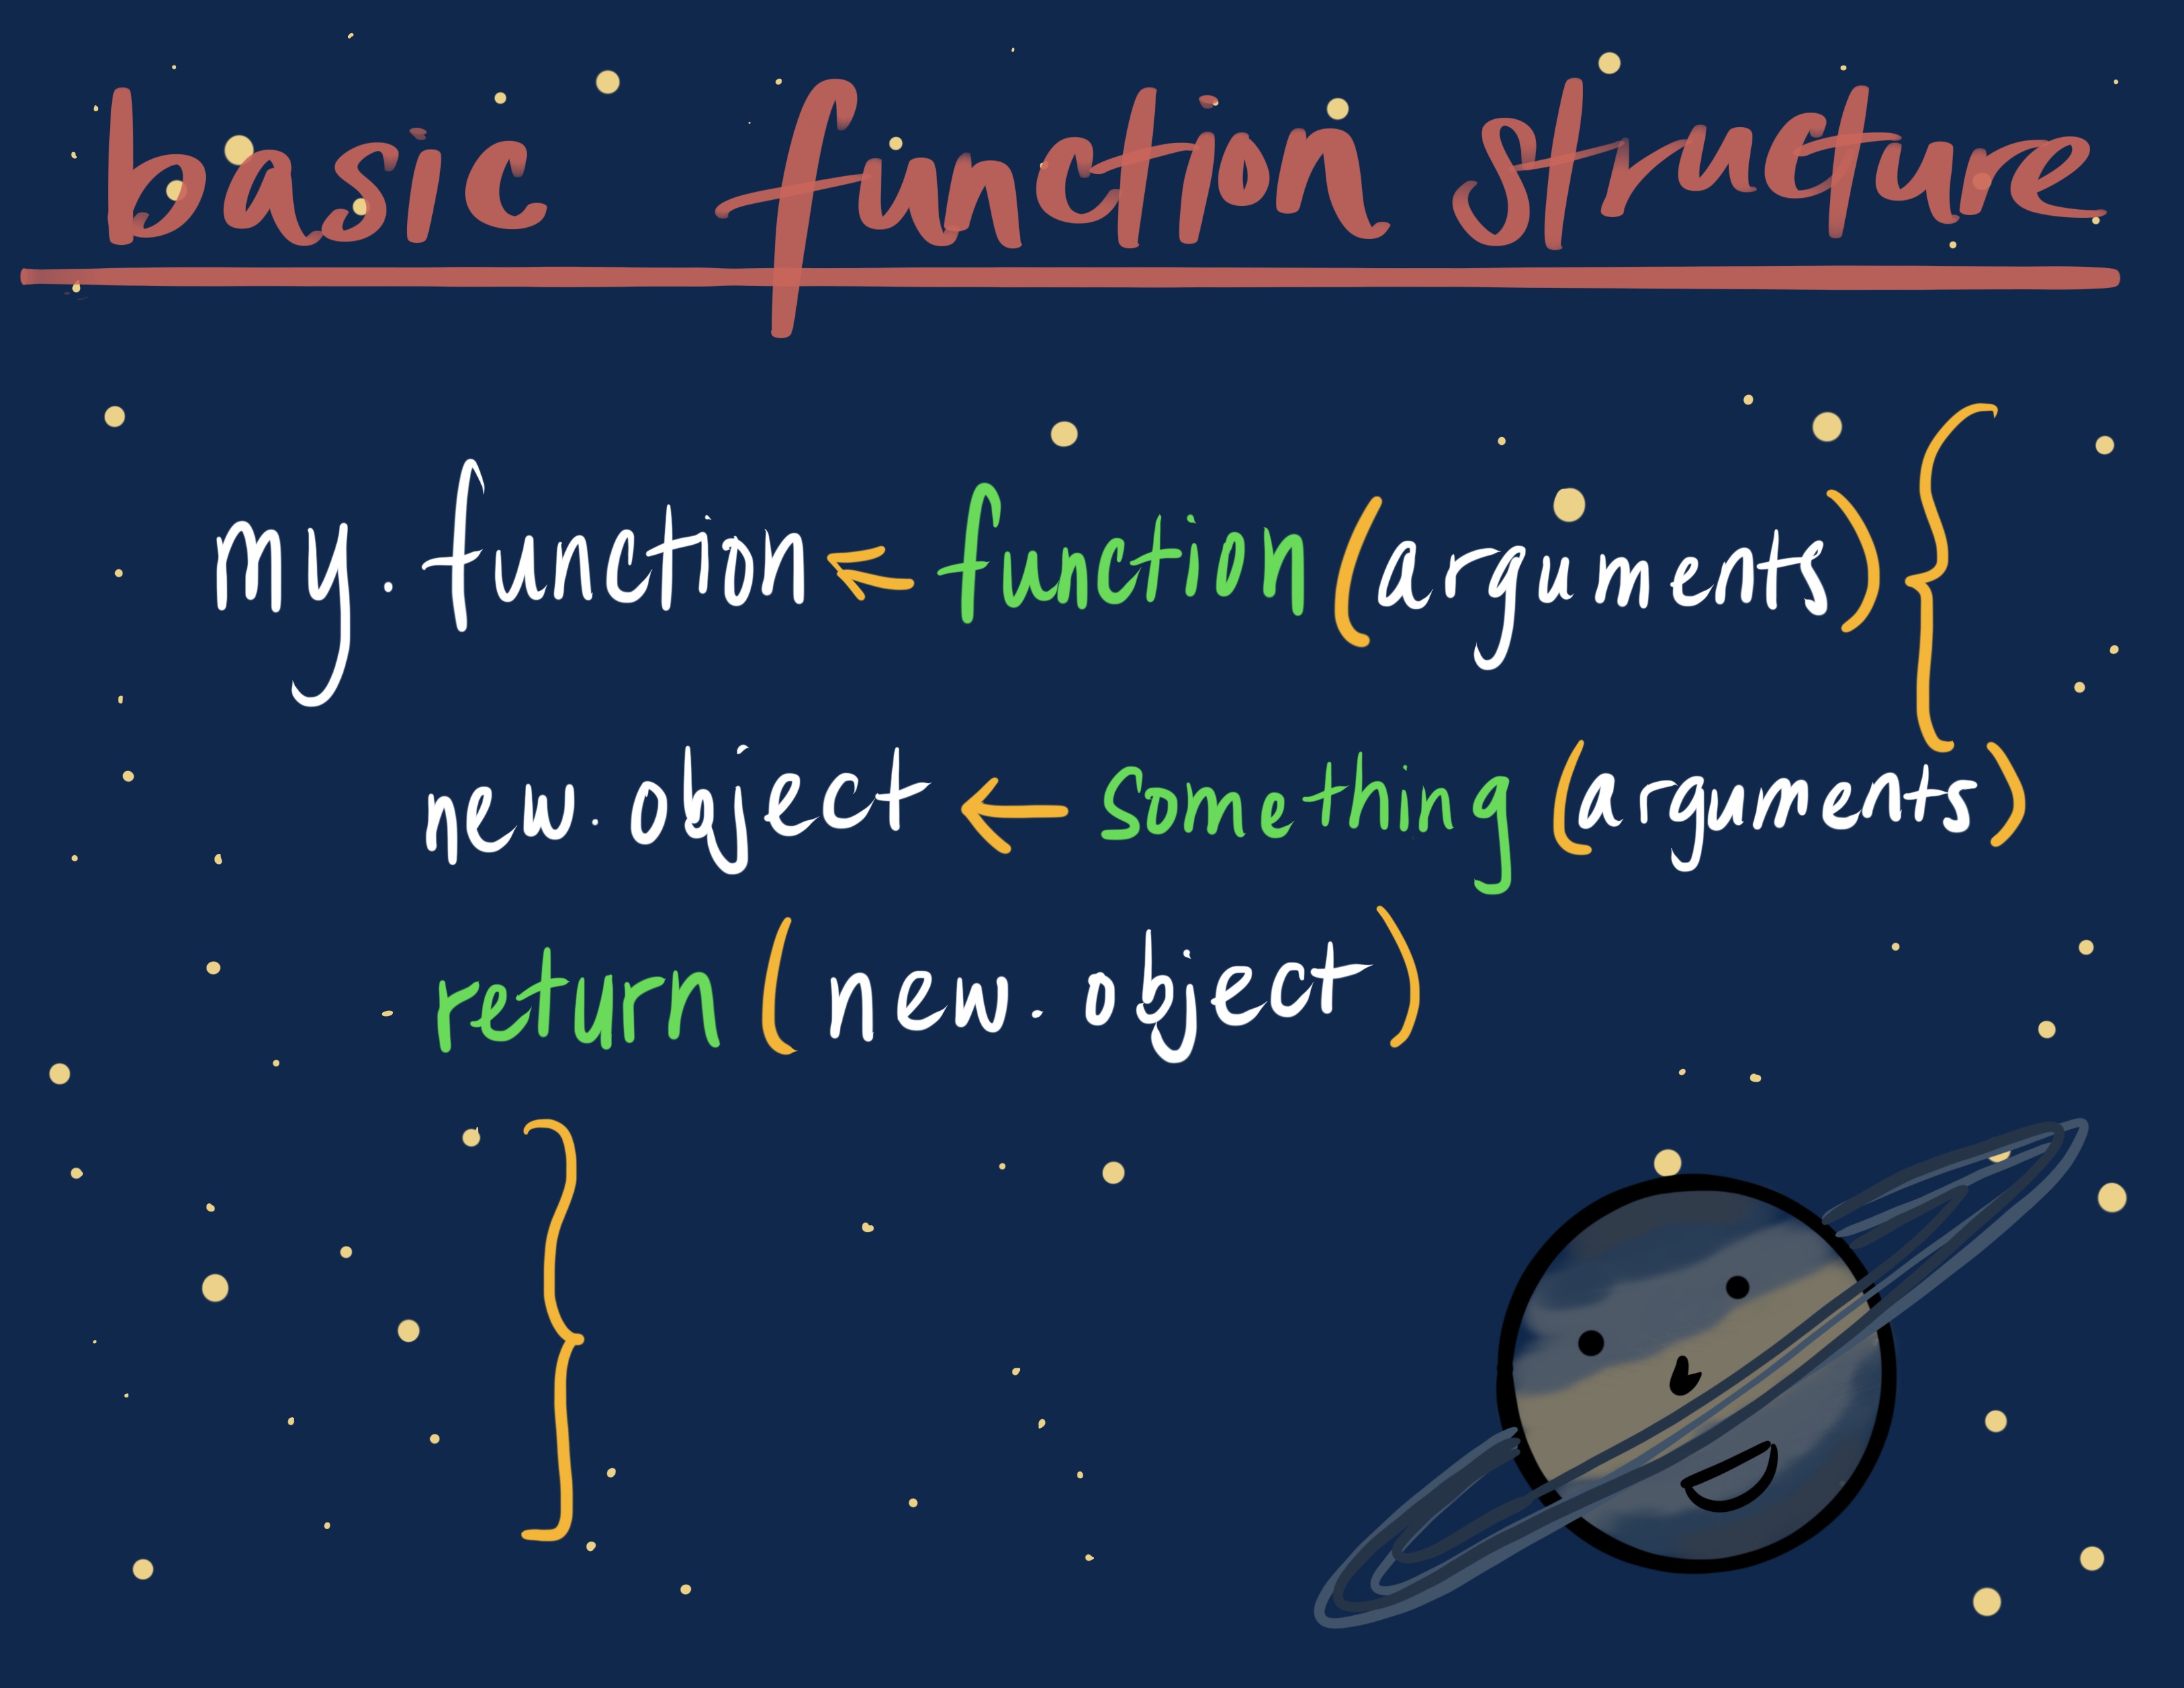 basic function structure
my.function ← function(arguments){
new.object ← something (arguments)
return (new.object)
}